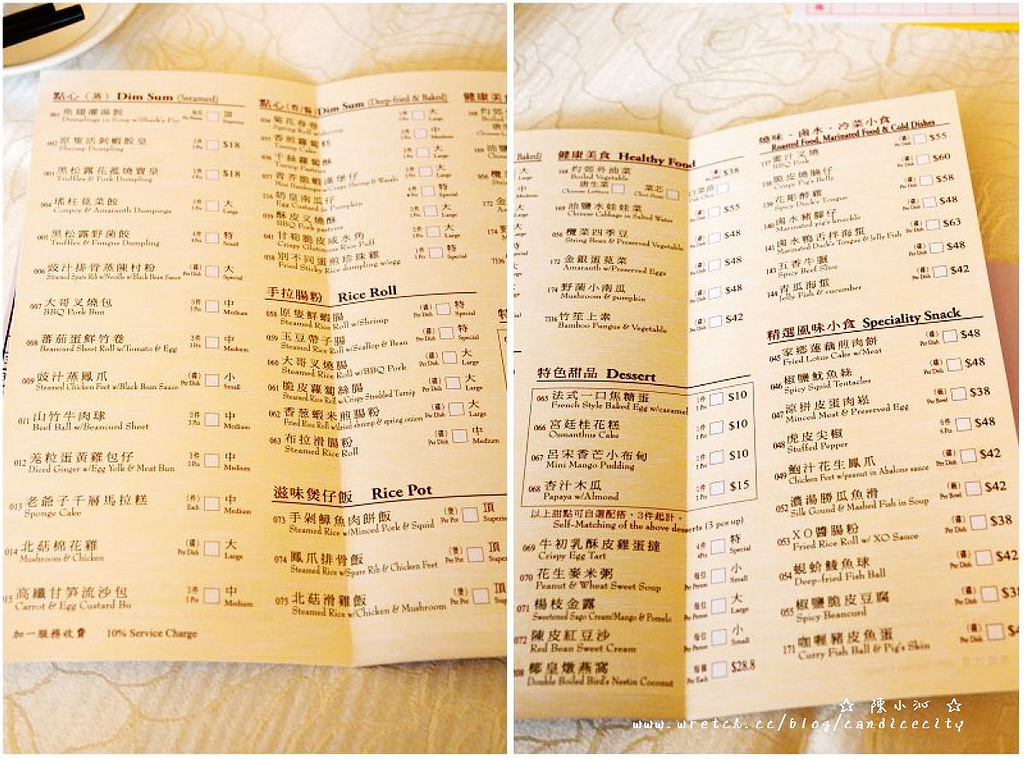 點心(蒸) Dim Sum (Steamed)
001 魚翅灌湯餃 頂
Dumplings in Soup w/Shark's Fin Superior
002 原隻活剝蝦餃皇 $18
Shrimp Dumpling
003 黑松露花菰燒賣皇 $18
Truffles & Pork Dumpling
004 瑤柱莧菜餃 大
Conpoy & Amaranth Dumpongs Large
005 黑松露野菌餃 特
Truffles & Fungus Dumpling Small
006 豉汁排骨蒸陳村粉 大
Steamed Spare Rib w/Noodle w/Black Bean Sauce Special
007 大哥叉燒包 中
BBQ Pork Bun Medium
008 蕃茄蛋鮮竹卷 中
Beancurd Sheet Roll w/Tomato & Egg Medium
009 豉汁蒸鳳爪 小
Steamed Chicken Feet w/Black Bean Sauce Small
011 山竹牛肉球 中
Beef Ball w/Beancurd Sheet Medium
012 羌粒蛋黃雞包仔 中
Diced Ginger w/Egg Yolk & Meat Bun Medium
013 老爺子千層馬拉糕 中
Sponge Cake Medium
014 北菇棉花雞 大
Mushroom & Chicken Large
高纖甘笋流沙包 中
Carrot & Egg Custard Bu Medium
加一服務收費 10% Service Charge
Dim Sum (Deep-fried & Baked)
菊花春卷 大
香煎蘿蔔糕 中
千絲蘿蔔酥 大
青芥脆蝦漢堡仔 大
奶皇南瓜仔 特
Egg Custard in Pumpkin Special
039 酥皮叉燒酥 大
BBQ Pork pastry Large
041 甘荀脆皮咸水角 大
Crispy Glutinous Rice Puff Large
038 別不同蛋煎珍珠雞 特
Fried Sticky Rice dumpling w/egg Special
手拉腸粉 Rice Roll
058 原隻鮮蝦腸 特
Steamed Rice Roll w/Shrimp Special
059 玉豆帶子腸 特
Steamed Rice Roll w/Scallop & Bean Special
060 大哥叉燒腸 大
Steamed Rice Roll w/BBQ Pork Large
061 脆皮蘿蔔絲腸 大
Large
062 香葱蝦米煎腸粉 大
Large
063 布拉滑腸粉 中
Steamed Rice Roll Medium
滋味煲仔飯 Rice Pot
073 手剁鱆魚肉餅飯 頂
Steamed Rice w/Minced Pork & Squid
074 鳳爪排骨飯 頂
Steamed Rice w/Spare Rib & Chicken Feet
075 北菇滑雞飯 頂
Steamed Rice w/Chicken & Mushroom
健康美食 Healthy Food
168 灼郊外油菜 $38
Boiled Vegetable
唐生菜 菜芯
Chinese Lettuce
169 油鹽水娃娃菜 $55
Chinese Cabbage in Salted Water
056 欖菜四季豆 $48
String Bean & Preserved Vegetable
172 金銀蛋莧菜 $48
Amaranth w/Preserved Eggs
174 野菌小南瓜 $48
Mushroom & pumpkin
7336 竹笙上素 $42
Bamboo Fungus & Vegetable
特色甜品 Dessert
065 法式一口焦糖蛋 $10
French Style Baked Egg w/caramel
066 宮廷桂花糕 $10
Osmanthus Cake
067 呂宋香芒小布甸 $10
Mini Mango Pudding
068 杏汁木瓜 $15
Papaya w/Almond
以上甜點可自選配搭，3件起計。
Self-Matching of the above desserts (3 pcs up)
069 牛初乳酥皮雞蛋撻 特
Crispy Egg Tart Special
070 花生麥米粥 小
Peanut & Wheat Sweet Soup Small
071 楊枝金露 大
Sweetened Sago Cream/Mango & Pomelo Large
072 陳皮紅豆沙 小
Red Bean Sweet Cream Small
椰皇燉燕窩 $28.8
Double Boiled Bird's Nestin Coconut
燒味、鹵水、冷菜小食
Roasted Food, Marinated Food & Cold Dishes
137 蜜汁叉燒 $55
BBQ Pork
138 脆皮燒腩仔 $60
Crispy Pig's Belly
139 花彫醉雞 $58
140 鹵水豬腳仔 $48
Marinated pig's knuckle
141 鹵水鴨舌拌海蜇 $63
Marinated Duck's Tongue & Jelly Fish
143 五香牛𦟌 $48
Spicy Beef Slice
144 青瓜海蜇 $42
Jelly Fish & cucumber
精選風味小食 Speciality Snack
045 家鄉蓮藕煎肉餅 $48
Fried Lotus Cake w/Meat
046 椒鹽魷魚絲 $48
Spicy Squid Tentacles
047 涼拼皮蛋肉崧 $38
Minced Meat & Preserved Egg
048 虎皮尖椒 $48
Stuffed Pepper
049 鮑汁花生鳳爪 $42
Chicken Feet w/peanut in Abalone sauce
052 濃湯勝瓜魚滑 $42
Silk Gound & Mashed Fish in Soup
053 XO醬腸粉 $38
Fried Rice Roll w/ XO Sauce
054 蜆蚧鯪魚球 $42
Deep-fried Fish Ball
055 椒鹽脆皮豆腐
Spicy Beancurd
171 咖喱豬皮魚蛋
Curry Fish Ball & Pig's Skin
☆ 陳小沁 ☆
www.wretch.cc/blog/candicecity